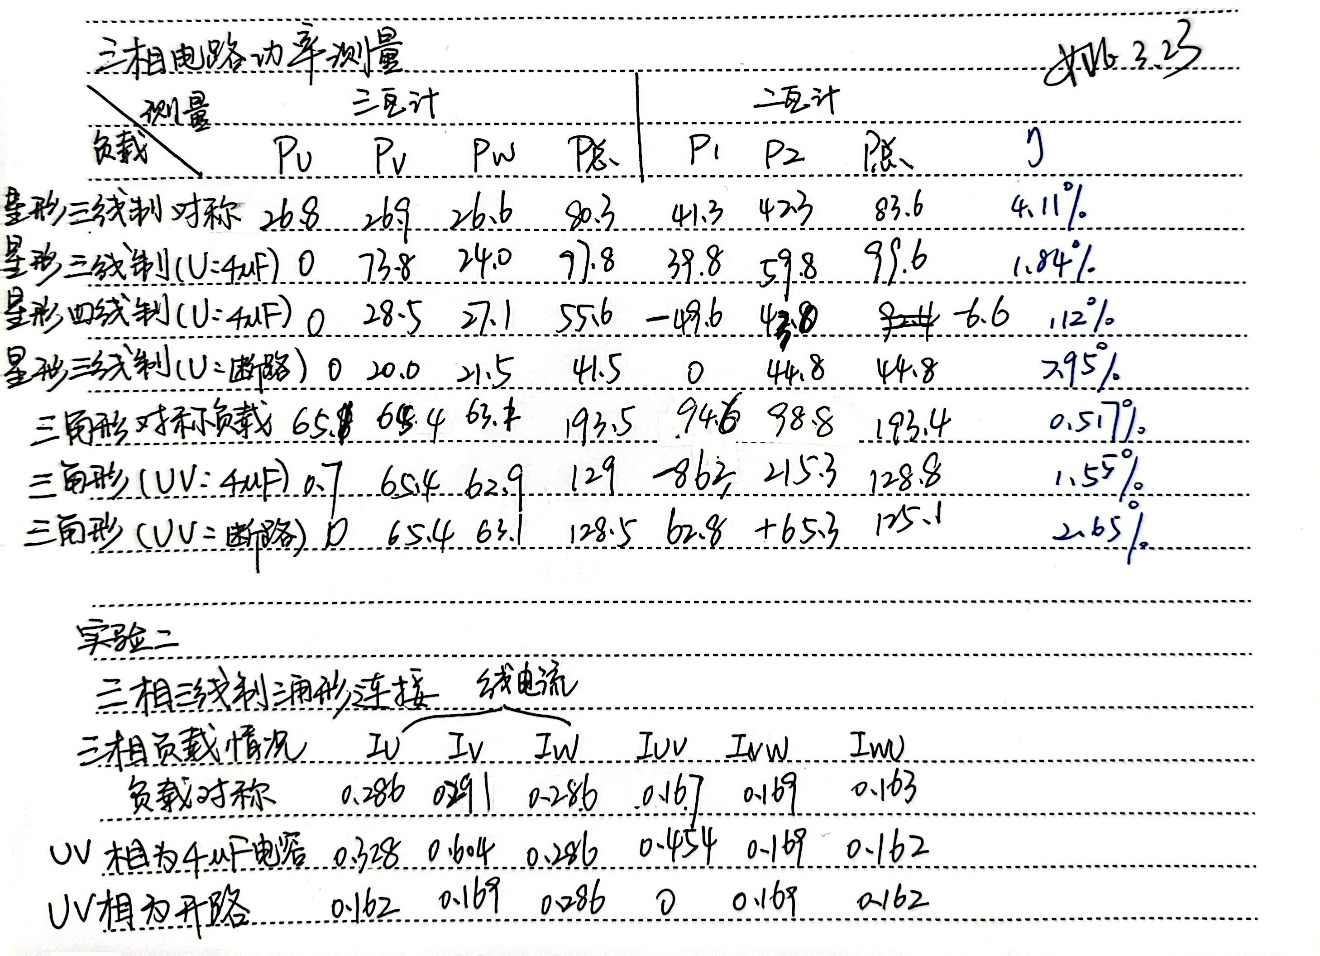 三相电路功率测量
3.23
测量 三瓦计 二瓦计
负载 PU PV PW P总 P1 P2 P总 η
星形三线制对称 26.8 26.9 26.6 80.3 41.3 42.3 83.6 4.11%
星形三线制(U:4μF) 0 73.8 24.0 97.8 39.8 59.8 99.6 1.84%
星形四线制(U:4μF) 0 28.5 27.1 55.6 -49.6 43.0 -6.6 112%
星形三线制(U:断路) 0 20.0 21.5 41.5 0 44.8 44.8 7.95%
三角形对称负载 65. 64.4 63.1 193.5 94.6 98.8 193.4 0.517%
三角形(UV:4μF) 0.7 65.4 62.9 129 -86.2 215.3 128.8 1.55%
三角形(UV:断路) 0 65.4 63.1 128.5 62.8 +65.3 125.1 2.65%
实验二
三相三线制三角形连接 线电流
三相负载情况 IU IV IW IUV IVW IWU
负载对称 0.286 0.291 0.286 0.167 0.169 0.163
UV相为4μF电容 0.328 0.604 0.286 0.454 0.169 0.162
UV相为开路 0.162 0.169 0.286 0 0.169 0.162